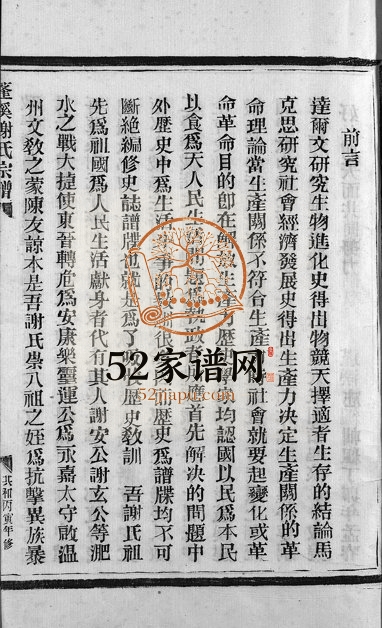 前言
達爾文研究生物進化史得出物競天擇適者生存的結論馬
克思研究社會經濟發展史得出生產力決定生產關係的革
命理論當生產關係不符合生產 社會就要起變化或革
命革命目的卽在解放生產力歷 均認國以民爲本民
以食爲天人民生活問題爲執政者 應首先解決的問題中
外歷史中爲生活 的 很 歷史爲譜牒均不可
斷絶編修史誌譜牒也就是爲了吸收歷史敎訓 吾謝氏祖
先爲祖國爲人民生活獻身者代有其人謝安公謝玄公等淝
水之戰大捷使東晉轉危爲安康樂靈運公爲永嘉太守啟溫
州文敎之蒙陳友諒本是吾謝氏榮八祖之姪爲抗擊異族暴
蓬溪謝氏宗譜
共和丙寅年修
52家谱网
52jiapu.com